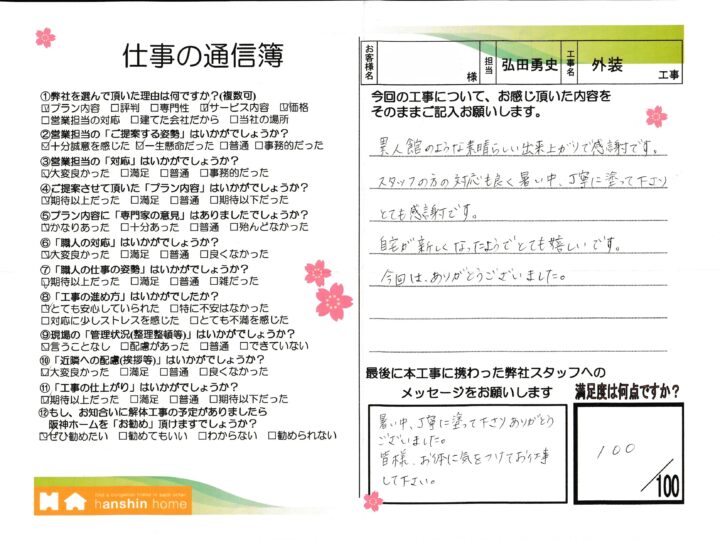 仕事の通信簿
①弊社を選んで頂いた理由は何ですか?(複数可)
☑プラン内容 □評判 □専門性 ☑サービス内容 ☑価格
□営業担当の対応 □建てた会社だから □当社の場所
②営業担当の「ご提案する姿勢」はいかがでしょうか?
☑十分誠意を感じた ☑一生懸命だった □普通 □事務的だった
③営業担当の「対応」はいかがでしょうか?
☑大変良かった □満足 □普通 □事務的だった
④ご提案させて頂いた「プラン内容」はいかがでしょうか?
☑期待以上だった □満足 □普通 □期待以下だった
⑤プラン内容に「専門家の意見」はありましたでしょうか?
☑かなりあった □十分あった □普通 □殆んどなかった
⑥「職人の対応」はいかがでしょうか?
☑大変良かった □満足 □普通 □良くなかった
⑦「職人の仕事の姿勢」はいかがでしょうか?
☑期待以上だった □満足 □普通 □雑だった
⑧「工事の進め方」はいかがでしたか?
☑とても安心していられた □特に不安はなかった
□対応に少しストレスを感じた □とても不満を感じた
⑨現場の「管理状況(整理整頓等)」はいかがでしょうか?
☑言うことなし □配慮があった □普通 □できていない
⑩「近隣への配慮(挨拶等)」はいかがでしょうか?
☑大変良かった □満足 □普通 □良くなかった
⑪「工事の仕上がり」はいかがでしょうか?
☑大変良かった □満足 □普通 □良くなかった
⑫もし、お知合いに解体工事の予定がありましたら
阪神ホームを「お勧め」頂けますでしょうか?
☑ぜひ勧めたい □勧めてもいい □わからない □勧められない
hanshin home
お客様名 様 担当 弘田勇史 工事名 外装 工事
今回の工事について、お感じ頂いた内容を
そのままご記入お願いします。
異人館のような素晴らしい出来上がりで感謝です。
スタッフの方の対応も良く暑い中、丁寧に塗って下さり
とても感謝です。
自宅が新しくなったようでとても嬉しいです。
今回は、ありがとうございました。
最後に本工事に携わった弊社スタッフへの
メッセージをお願いします
暑い中、丁寧に塗って下さりありがとう
ございました。
皆様、お体に気をつけてお仕事
して下さい。
満足度は何点ですか?
100
/100